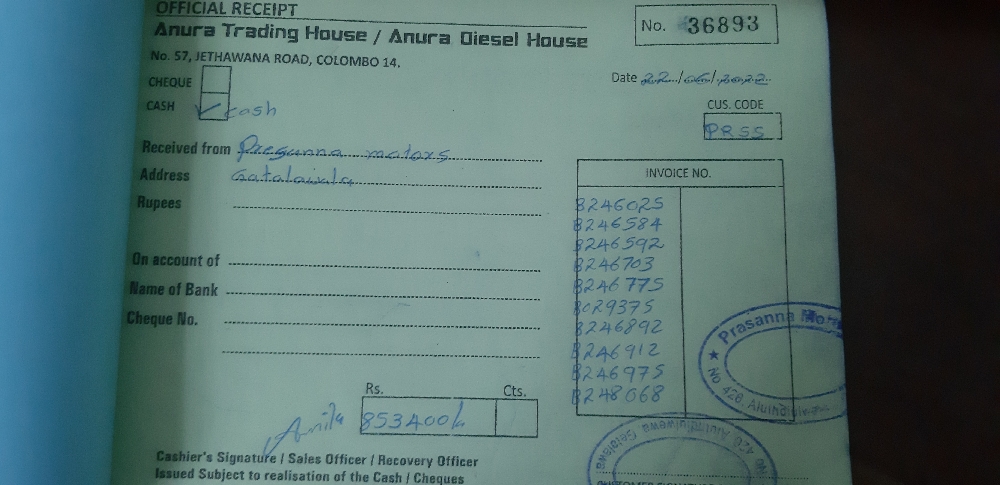 OFFICIAL RECEIPT
Anura Trading House / Anura Diesel House
No. 57, JETHAWANA ROAD, COLOMBO 14.
No. 36893
Date 22/06/2022
CHEQUE
CASH ✓ cash
CUS. CODE
PRSS
Received from Presanna motors
Address
Rupees
On account of
Name of Bank
Cheque No.
INVOICE NO.
B246025
B246584
B246592
B246703
B246775
B029375
B246892
B246912
B246975
B248068
Rs. Cts.
853400/-
Cashier's Signature / Sales Officer / Recovery Officer
Issued Subject to realisation of the Cash / Cheques
★ Prasanna
No 428